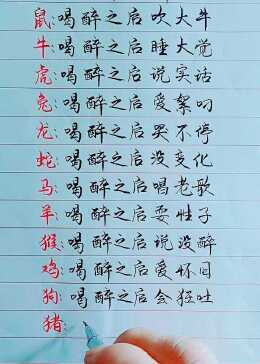 鼠:喝醉之后吹大牛
牛:喝醉之后睡大觉
虎:喝醉之后说实话
兔:喝醉之后爱絮叨
龙:喝醉之后哭不停
蛇:喝醉之后没变化
马:喝醉之后唱老歌
羊:喝醉之后耍性子
猴:喝醉之后说没醉
鸡:喝醉之后爱怀旧
狗:喝醉之后会狂吐
猪: